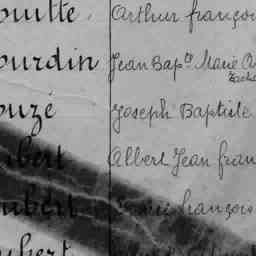 outte. Arthur françoi
ourdin Jean Bap^te Marie A
Zacha
ouzé Joseph Baptiste
bert Albert Jean fran
ubert françois
ubert